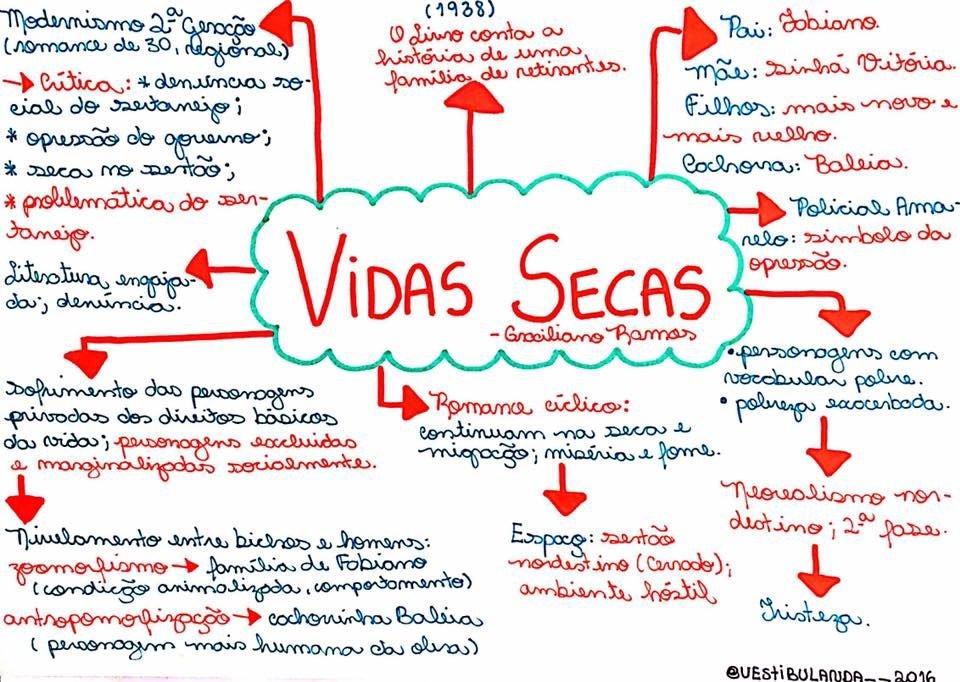 Modernismo 2ª Geração
(romance de 30, regional)
→ Crítica: * denúncia so-
cial do sertanejo;
* opressão do governo;
* seca no sertão;
* problemática do ser-
tanejo.
(1938)
O livro conta a
história de uma
família de retirantes.
Pai: Fabiano.
Mãe: Sinhá Vitória.
Filhos: mais novo e
mais velho.
Cachorra: Baleia.
Policial Ama-
relo: símbolo da
opressão.
Literatura engaja-
da; denúncia.
VIDAS SECAS
- Graciliano Ramos
• personagens com
vocabular pobre.
• pobreza exacerbada.
Neorealismo nor-
destino; 2ª fase.
Tristeza.
sofrimento das personagens
privadas dos direitos básicos
da vida; personagens excluídas
e marginalizadas socialmente.
Romance cíclico:
continuam na seca e
migração; miséria e fome.
Espaço: sertão
nordestino (Cerrado);
ambiente hóstil
Nivelamento entre bichos e homens:
zoomorfismo → família de Fabiano
(condição animalizada, comportamento)
antropomorfização → cachorrinha Baleia
(personagem mais humana da obra)
@VESTIBULANDA__2016